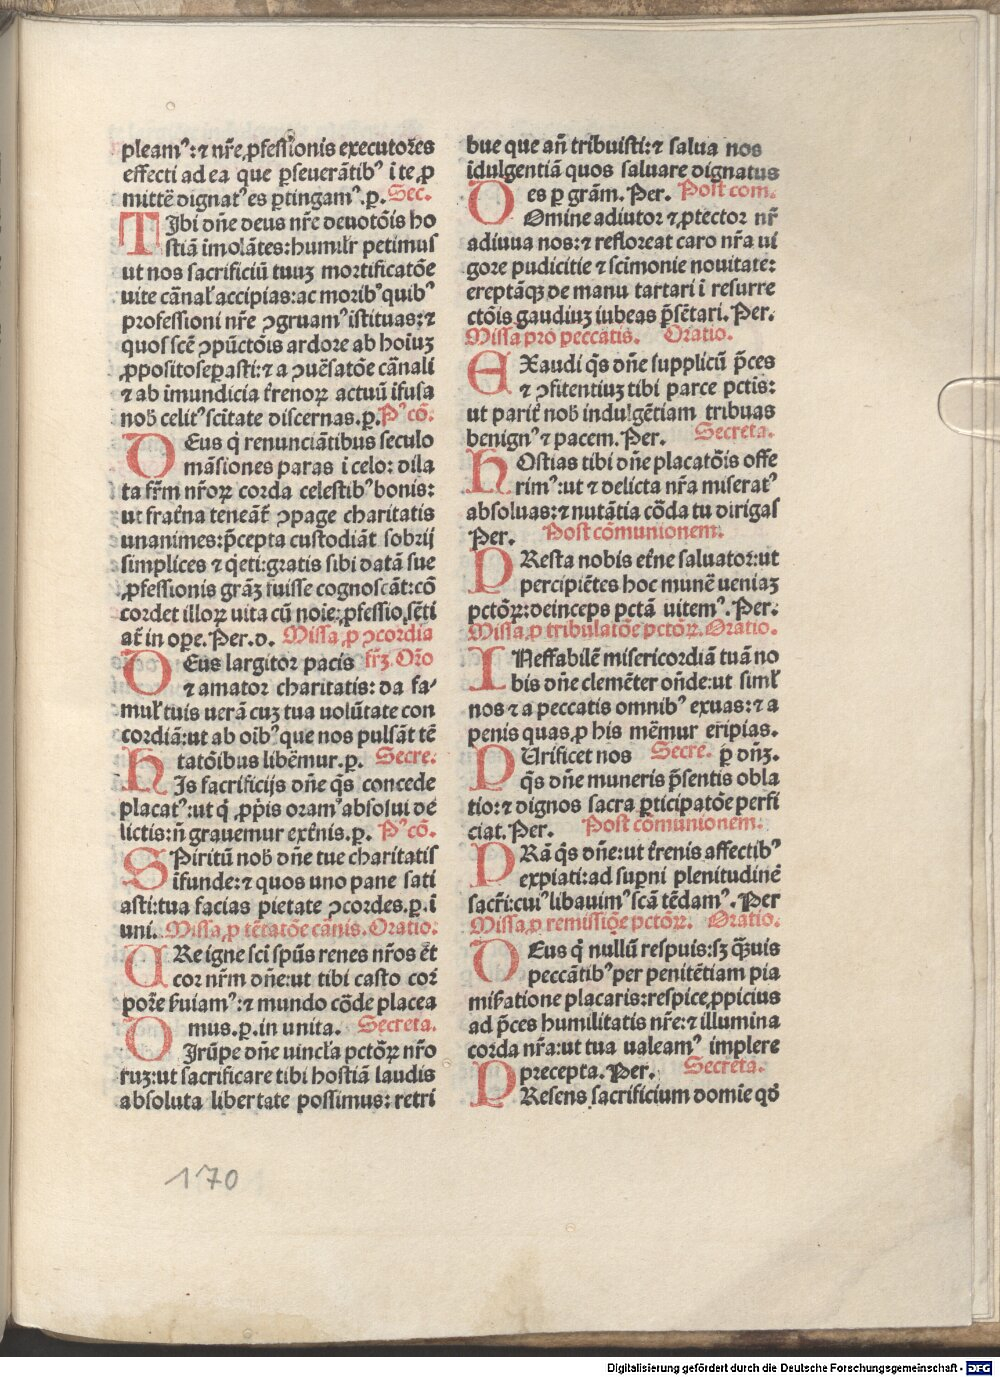 pleamꝰ: ⁊ nr̄e ꝓfessionis executores
effecti ad ea que ꝑseuerātibꝰ ī te ꝓ
mittē dignatꝰ es ꝑtingamꝰ. p. Sec.
TIbi dn̄e deus nr̄e deuotōis ho
stiā imolātes: humilr̄ petimus
ut nos sacrificiū tuuꝫ mortificatōe
uite cānaɫ accipias: ac moribꝰ quibꝰ
professioni nr̄e ꝯgruamꝰ īstituas: ⁊
quos scē ꝯpūctōis ardore ab hoīuꝫ
ꝓposito seꝑasti: ⁊ a ꝯuēsatōe cānali
⁊ ab īmundicia t̄renoꝝ actuū īfusa
nob̄ celitꝰ scītate discernas. p. Pꝰ cō.
DEus q̄ renunciātibus seculo
māsiones paras ī celo: dila
ta fr̄m nr̄oꝝ corda celestibꝰ bonis:
ut frat̄na teneāt̄ ꝯpage charitatis
unanimes: p̄cepta custodiāt sobrij
simplices ⁊ q̄eti: gratis sibi datā sue
ꝓfessionis grāꝫ fuisse cognoscāt: cō
cordet illoꝝ uita cū noīe: ꝓfessio sēti
at̄ in oꝑe. Per. d. Missa ꝓ ꝯcordia
DEus largitor pacis fr̄ꝫ. Oro
⁊ amator charitatis: da fa⸗
muɫ tuis uerā cuꝫ tua uolūtate con
cordiā: ut ab oībꝰ que nos pulsāt tē
tatōibus libēmur. p. Secre.
HIs sacrificijs dn̄e q̄s concede
placatꝰ: ut q̄ ꝓpꝑis oramꝰ absolui de
lictis: n̄ grauemur ext̄nis. p. Pꝰ cō.
SPiritū nob̄ dn̄e tue charitatis
īfunde: ⁊ quos uno pane sati
asti: tua facias pietate ꝯcordes. p. ī
uni. Missa ꝓ tētatōe carnis. Oratio.
URe igne sc̄i sp̄us renes nr̄os et̄
cor nr̄m dn̄e: ut tibi casto cor̄
pore ſ̄uiamꝰ: ⁊ mundo cōde placea
mus. p. in unita. Secreta.
DIrūpe dn̄e uincl̄a pctōꝝ nr̄o
ruꝫ: ut sacrificare tibi hostiā laudis
absoluta libertate possimus: retri
bue que an̄ tribuisti: ⁊ salua nos
īdulgentiā quos saluare dignatus
es p grām. Per. Post com.
DOmine adiutor ⁊ ꝓtector nr̄
adiuua nos: ⁊ refloreat caro nr̄a ui
gore pudicitie ⁊ scīmonie nouitate:
ereptāqꝫ de manu tartari ī resurre
ctōis gaudiuꝫ iubeas p̄sētari. Per.
Missa pro peccatis. Oratio.
EXaudi q̄s dn̄e supplicū p̄ces
⁊ ꝯfitentiuꝫ tibi parce pctis:
ut parit̄ nob̄ indulgētiam tribuas
benignꝰ ⁊ pacem. Per. Secreta.
HOstias tibi dn̄e placatōis offe
rimꝰ: ut ⁊ delicta nr̄a miseratꝰ
absoluas: ⁊ nutātia cōda tu dirigas
Per. Post cōmunionem.
PResta nobis et̄ne saluator: ut
percipiētes hoc munē ueniaꝫ
pctōꝝ: deinceps pctā uitemꝰ. Per.
Missa ꝓ tribulatōe pctōꝝ. Oratio.
INeffabilē misericordiā tuā no
bis dn̄e clemēter on̄de: ut simɫ
nos ⁊ a peccatis omnibꝰ exuas: ⁊ a
penis quas ꝓ his mēmur eripias.
PUrificet nos Secre. p dn̄ꝫ.
q̄s dn̄e muneris p̄sentis obla
tio: ⁊ dignos sacra ꝑticipatōe perfi
ciat. Per. Post cōmunionem.
PRā q̄s dn̄e: ut t̄renis affectibꝰ
expiati: ad suꝑni plenitudinē
sacri: cuiꝰ libauimꝰ scā tēdamꝰ. Per
Missa ꝓ remissiōe pctōꝝ. Oratio.
DEus q̄ nullū respuis: sꝫ qꝫuis
peccātibꝰ per penitētiam pia
miſ̄atione placaris: respice ꝓpicius
ad p̄ces humilitatis nr̄e: ⁊ illumina
corda nr̄a: ut tua ualeamꝰ implere
precepta. Per. Secreta.
PResens sacrificium domīe qd̄
170
Digitalisierung gefördert durch die Deutsche Forschungsgemeinschaft - DFG